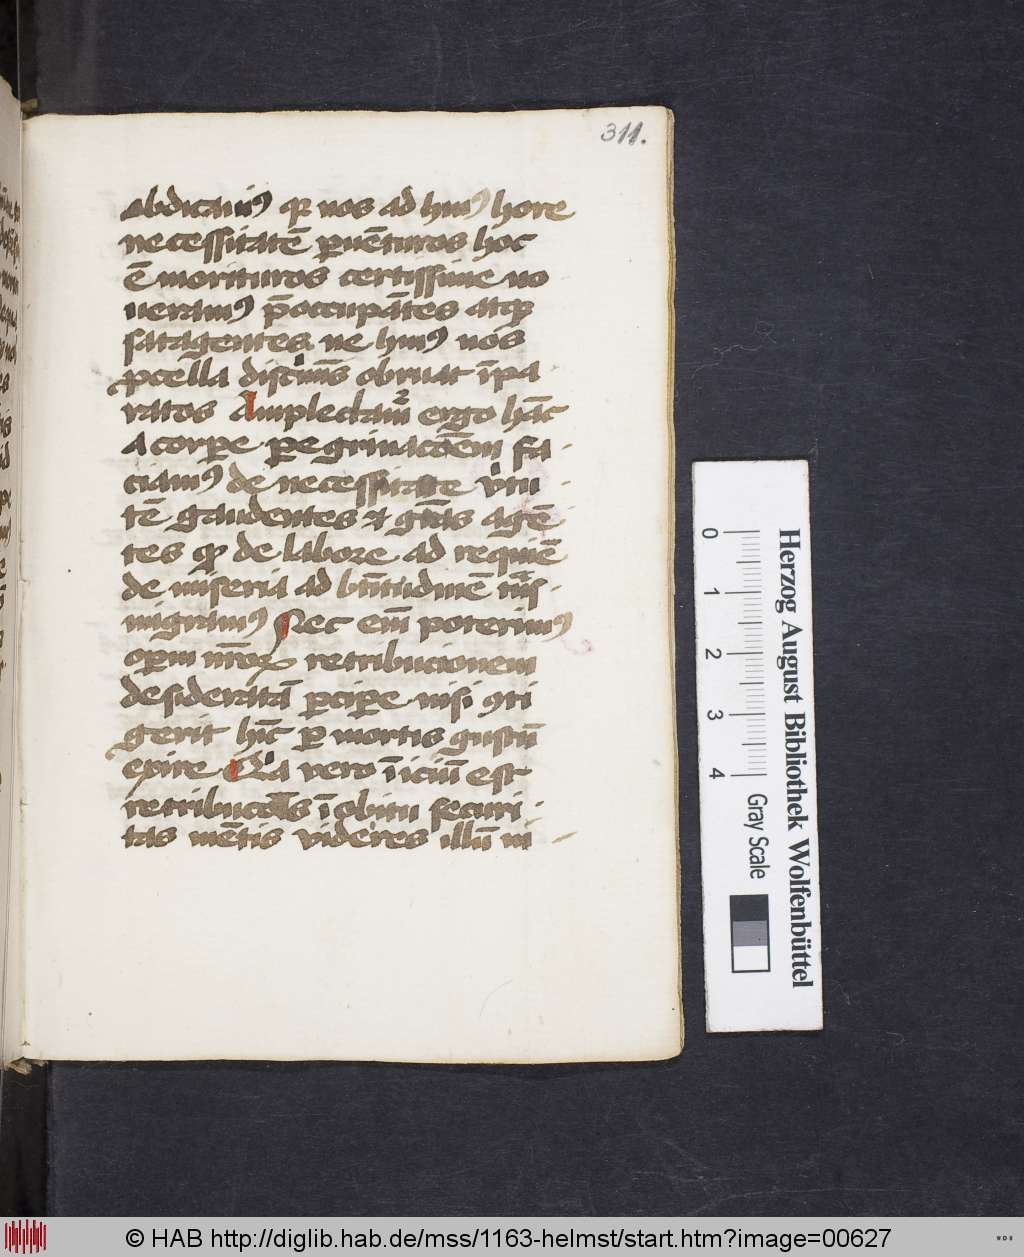 311.
abdicamꝰ qꝛ nos ad huiꝰ hore
necessitatē ꝑuēturos hoc
ē morituros certissime no
ueramꝰ p̄occupātes atqꝫ
satagentes ne huiꝰ nos
ꝓcella discīīs obruat īpa
ratos Amplectam᷑ ergo hāc
a corꝑe ꝑegrinacōem fa
ciamꝰ de necessitate v̛tu
tē gaudentes et gr̄as agē
tes qꝫ de labore ad requiē
de miseria ad bt̄itudinē
migramꝰ Nec em̄ poterimꝰ
oꝑm nr̄oꝝ retribucionem
desideratā ꝑciꝑe nisi ꝯti
gerit hūc ꝑ mortis gustū
exire Qa vero īiciū est
retribucōis ī obitu securi
tas mētis videres illū in
Herzog August Bibliothek Wolfenbüttel
0 1 2 3 4
Gray Scale
© HAB http://diglib.hab.de/mss/1163-helmst/start.htm?image=00627